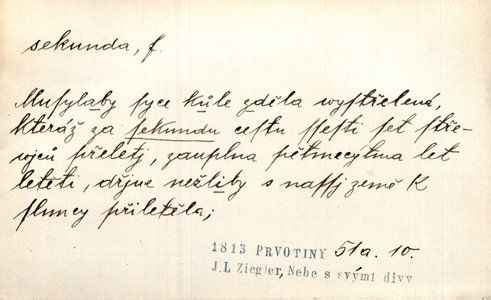 sekunda, f.
Musylaby syce kůle zděla wystřelená,
kteráž za sekundu cestu ssesti set stře-
wjců přeletj, zauplna pětmecytma let
letěti, dřjwe nežliby s nassj země k
slunci přiletěla;
1813 PRVOTINY 51a. 10.
J.L Ziegler, Nebe s svými divy